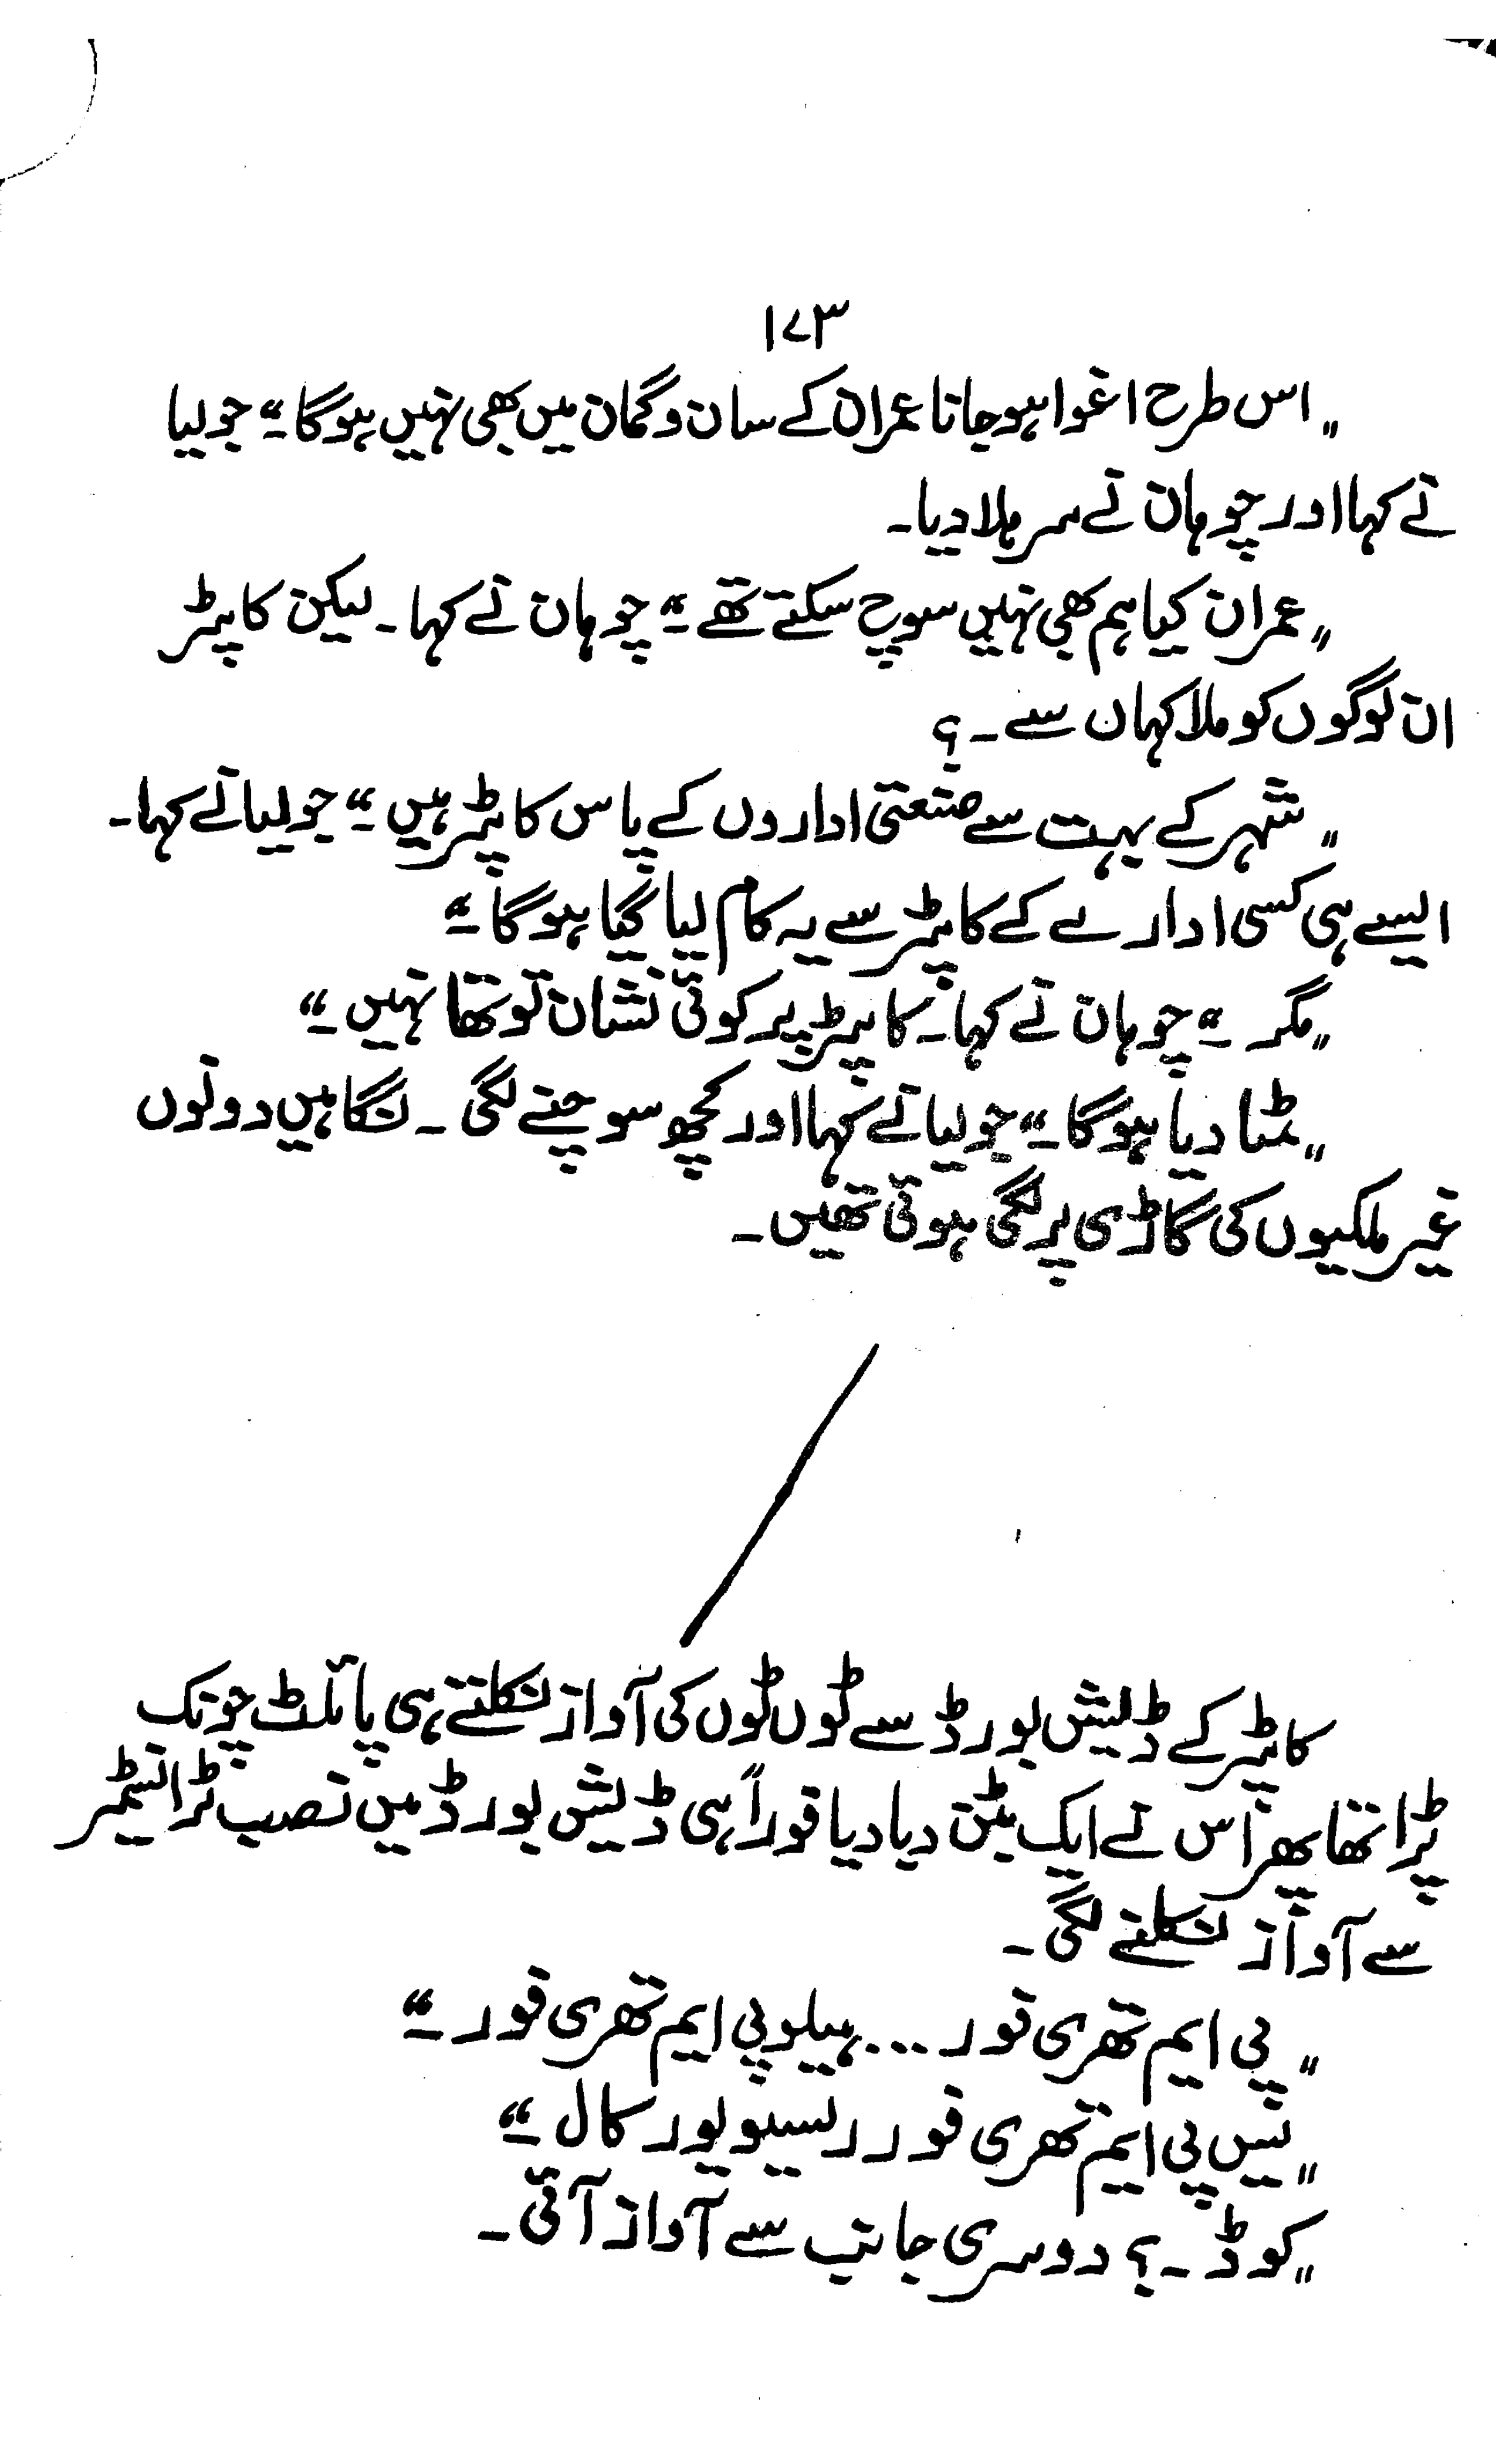 ۱۷۳
"اس طرح اغوا ہو جانا عمران کے سان و گمان میں بھی نہیں ہوگا۔" جولیا
نے کہا اور چوہان نے سر ہلا دیا۔
"عمران کیا ہم بھی نہیں سوچ سکتے تھے۔" چوہان نے کہا۔ لیکن کاپٹر
ان لوگوں کو ملا کہاں سے۔؟
"شہر کے بہت سے صنعتی اداروں کے پاس کاپٹر ہیں۔" جولیا نے کہا۔
ایسے ہی کسی ادارے کے کاپٹر سے یہ کام لیا گیا ہوگا۔"
"مگر۔" چوہان نے کہا۔ کاپٹر پر کوئی نشان تو تھا نہیں۔"
"مٹا دیا ہوگا۔" جولیا نے کہا اور کچھ سوچنے لگی۔ نگاہیں دونوں
غیر ملکیوں کی گاڑی پر لگی ہوئی تھیں۔
کاپٹر کے ڈیش بورڈ سے ٹوں ٹوں کی آواز نکلتے ہی پائلٹ چونک
پڑا تھا پھر اس نے ایک بٹن دبا دیا فوراً ہی ڈیش بورڈ میں نصب ٹرانسیٹر
سے آواز نکلنے لگی۔
"پی ایم تھری فور ... ہیلو پی ایم تھری فور۔"
"یس پی ایم تھری فور ریسیو یور کال۔"
"کوڈ۔؟ دوسری جانب سے آواز آئی۔